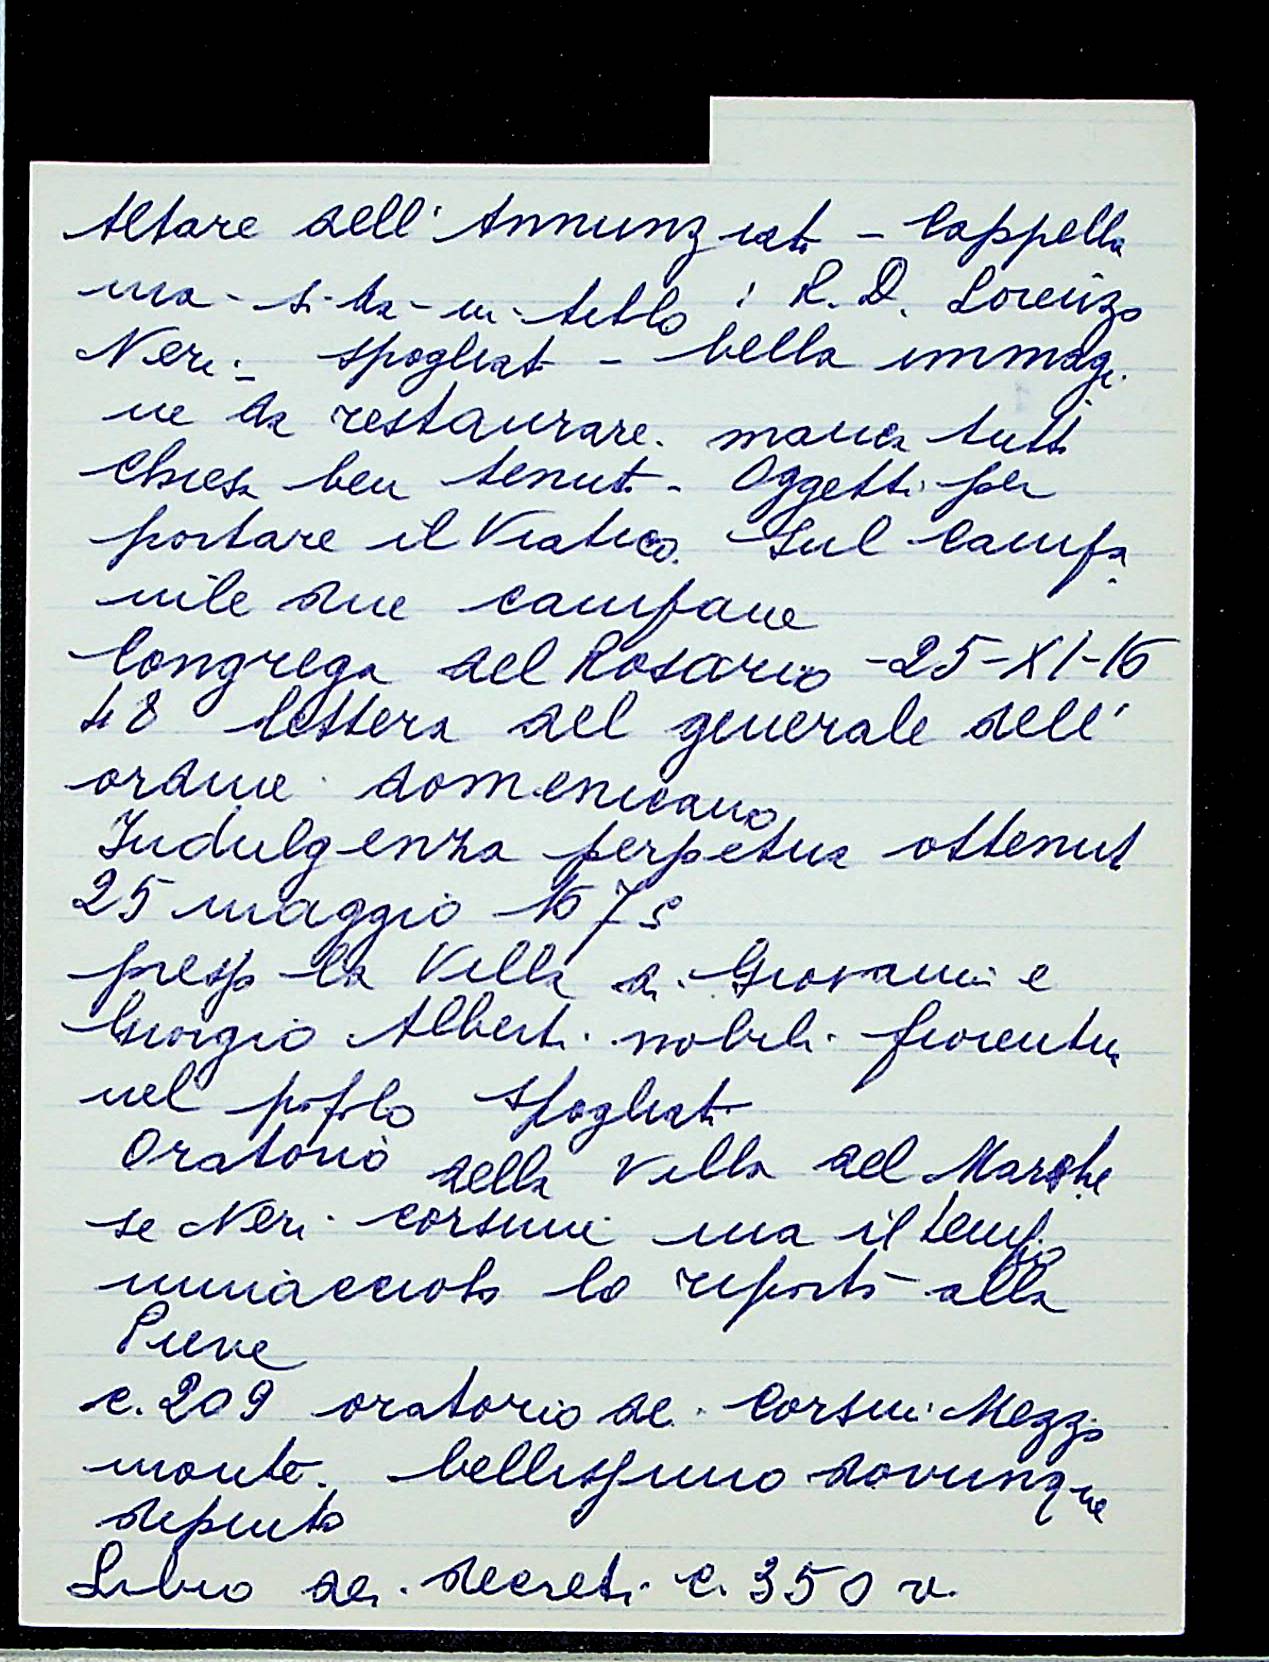 Altare dell'Annunziata - Cappella
ma - - - - : R. D. Lorenzo
Neri - spogliat - bella immagi
ne da restaurare. manca tutt
chiesa ben tenuta - Oggetti per
portare il Viatico. Sul Campa
nile due campane
Congrega del Rosario - 25-XI-16
48 lettera del generale dell'
ordine domenicano
Indulgenza perpetua ottenut
25 maggio 167
presso la Villa di Giovanni e
Giorgio Alberti nobili fiorentini
nel popolo Spogliati
Oratorio della Villa del Marche
se Neri Corsini ma il tempo
minacciato lo riportò alla
Pieve
c. 209 oratorio dei Corsini Mezzo
monte. bellissimo dovunque
dipinto
Libro dei decreti c. 350 v.